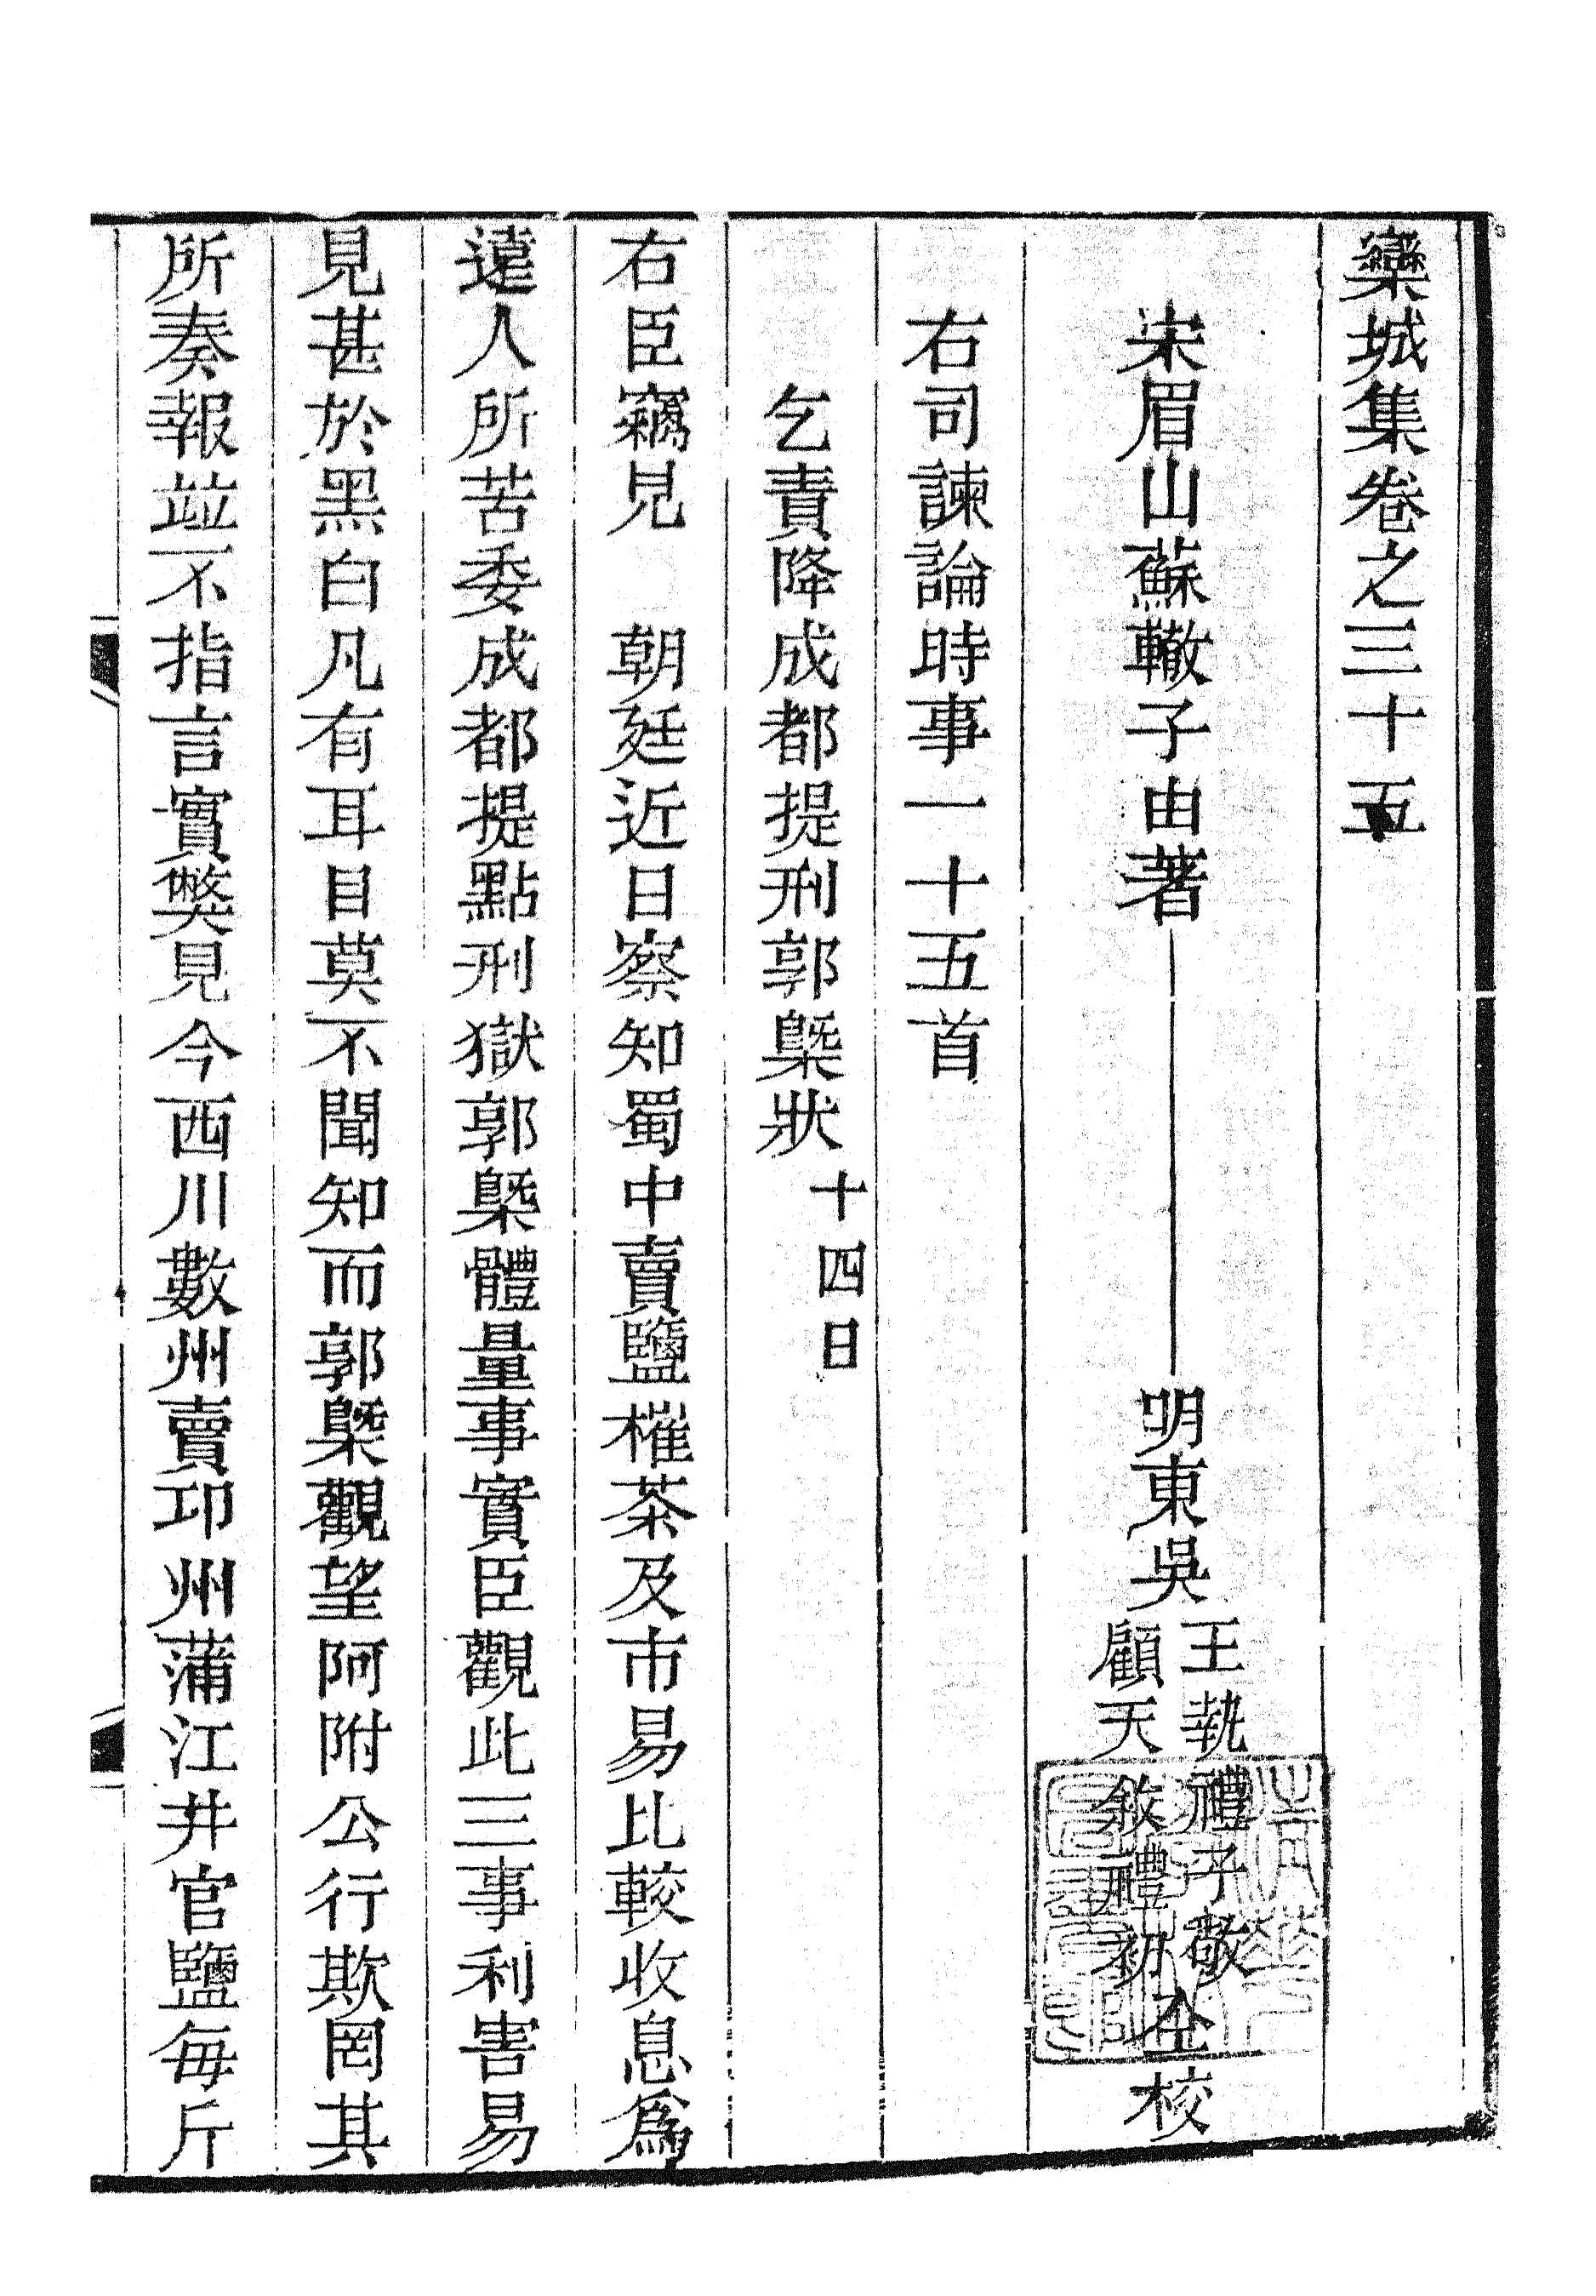 欒城集卷之三十五
宋眉山蘇轍子由著
明東吳
王執禮子敬
顧天敘禮初
仝校
右司諫論時事一十五首
乞責降成都提刑郭槩狀十四日
右臣竊見　朝廷近日察知蜀中賣鹽榷茶及市易比較收息爲
遠人所苦委成都提點刑獄郭槩體量事實臣觀此三事利害易
見甚於黑白凡有耳目莫不聞知而郭槩觀望阿附公行欺罔其
所奏報並不指言實獘見今西川數州賣邛州蒲江井官鹽每斤